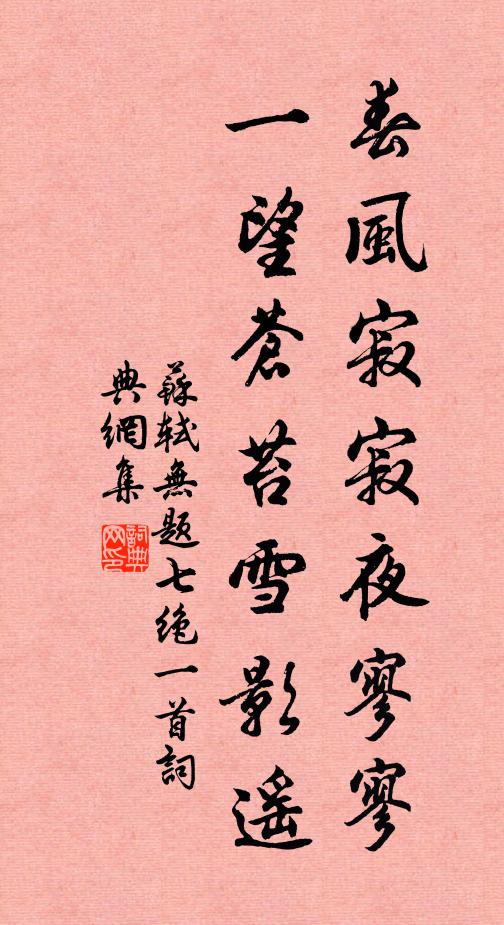 春風寂寂夜寥寥
一望蒼苔雪影遥
蘇軾無題七绝一首詞
典網集
詞典
网印